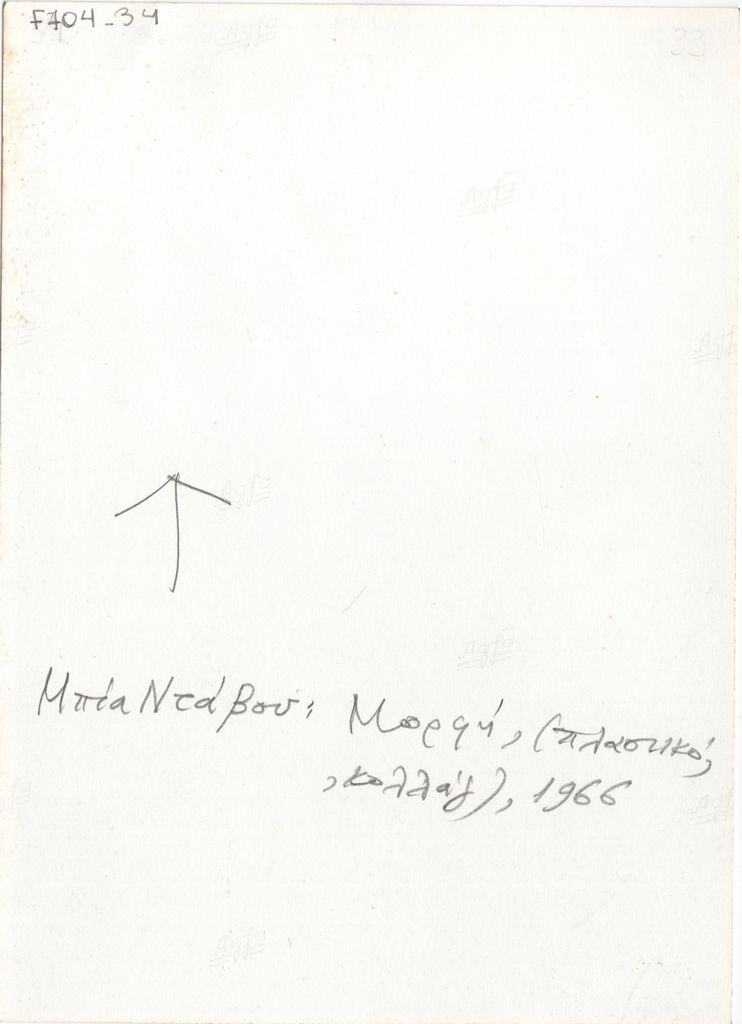 F704-34
33
Agfa
Agfa
Agfa
Agfa
Agfa
Μπία Ντάβου: Μορφή, (πλαστικό,
, κολλάζ), 1966
Agfa
Agfa